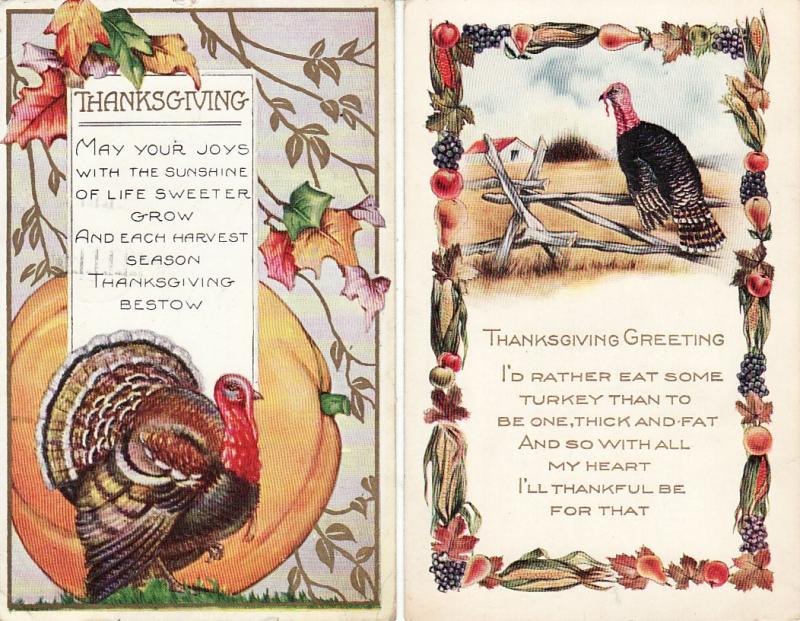 THANKSGIVING
MAY YOUR JOYS
WITH THE SUNSHINE
OF LIFE SWEETER
GROW
AND EACH HARVEST
SEASON
THANKSGIVING
BESTOW
THANKSGIVING GREETING
I'D RATHER EAT SOME
TURKEY THAN TO
BE ONE, THICK AND FAT
AND SO WITH ALL
MY HEART
I'LL THANKFUL BE
FOR THAT